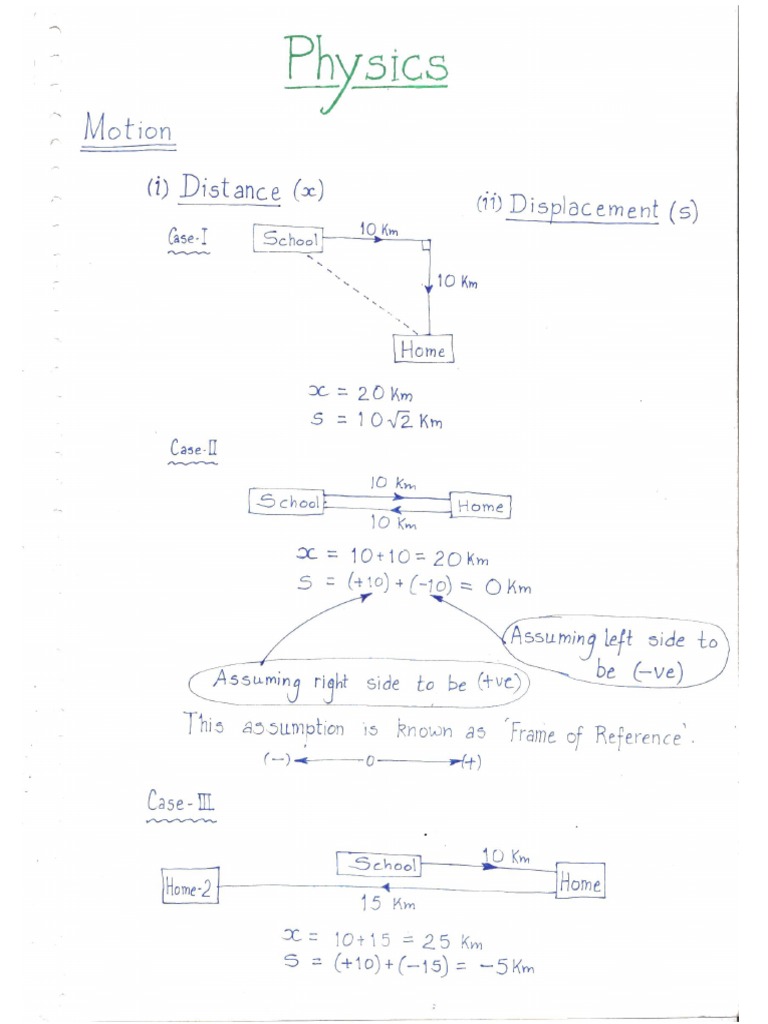 Physics
Motion
(i) Distance (x)
(ii) Displacement (s)
Case-I
School
10 Km
10 Km
Home
x = 20 Km
S = 10√2 Km
Case-II
10 Km
School
Home
10 Km
x = 10+10 = 20 Km
S = (+10) + (-10) = 0 Km
Assuming left side to
be (-ve)
Assuming right side to be (+ve)
This assumption is known as 'Frame of Reference'.
(-) 0 (+)
Case-III
School
10 Km
Home-2
Home
15 Km
x = 10+15 = 25 Km
S = (+10)+(-15) = -5 Km